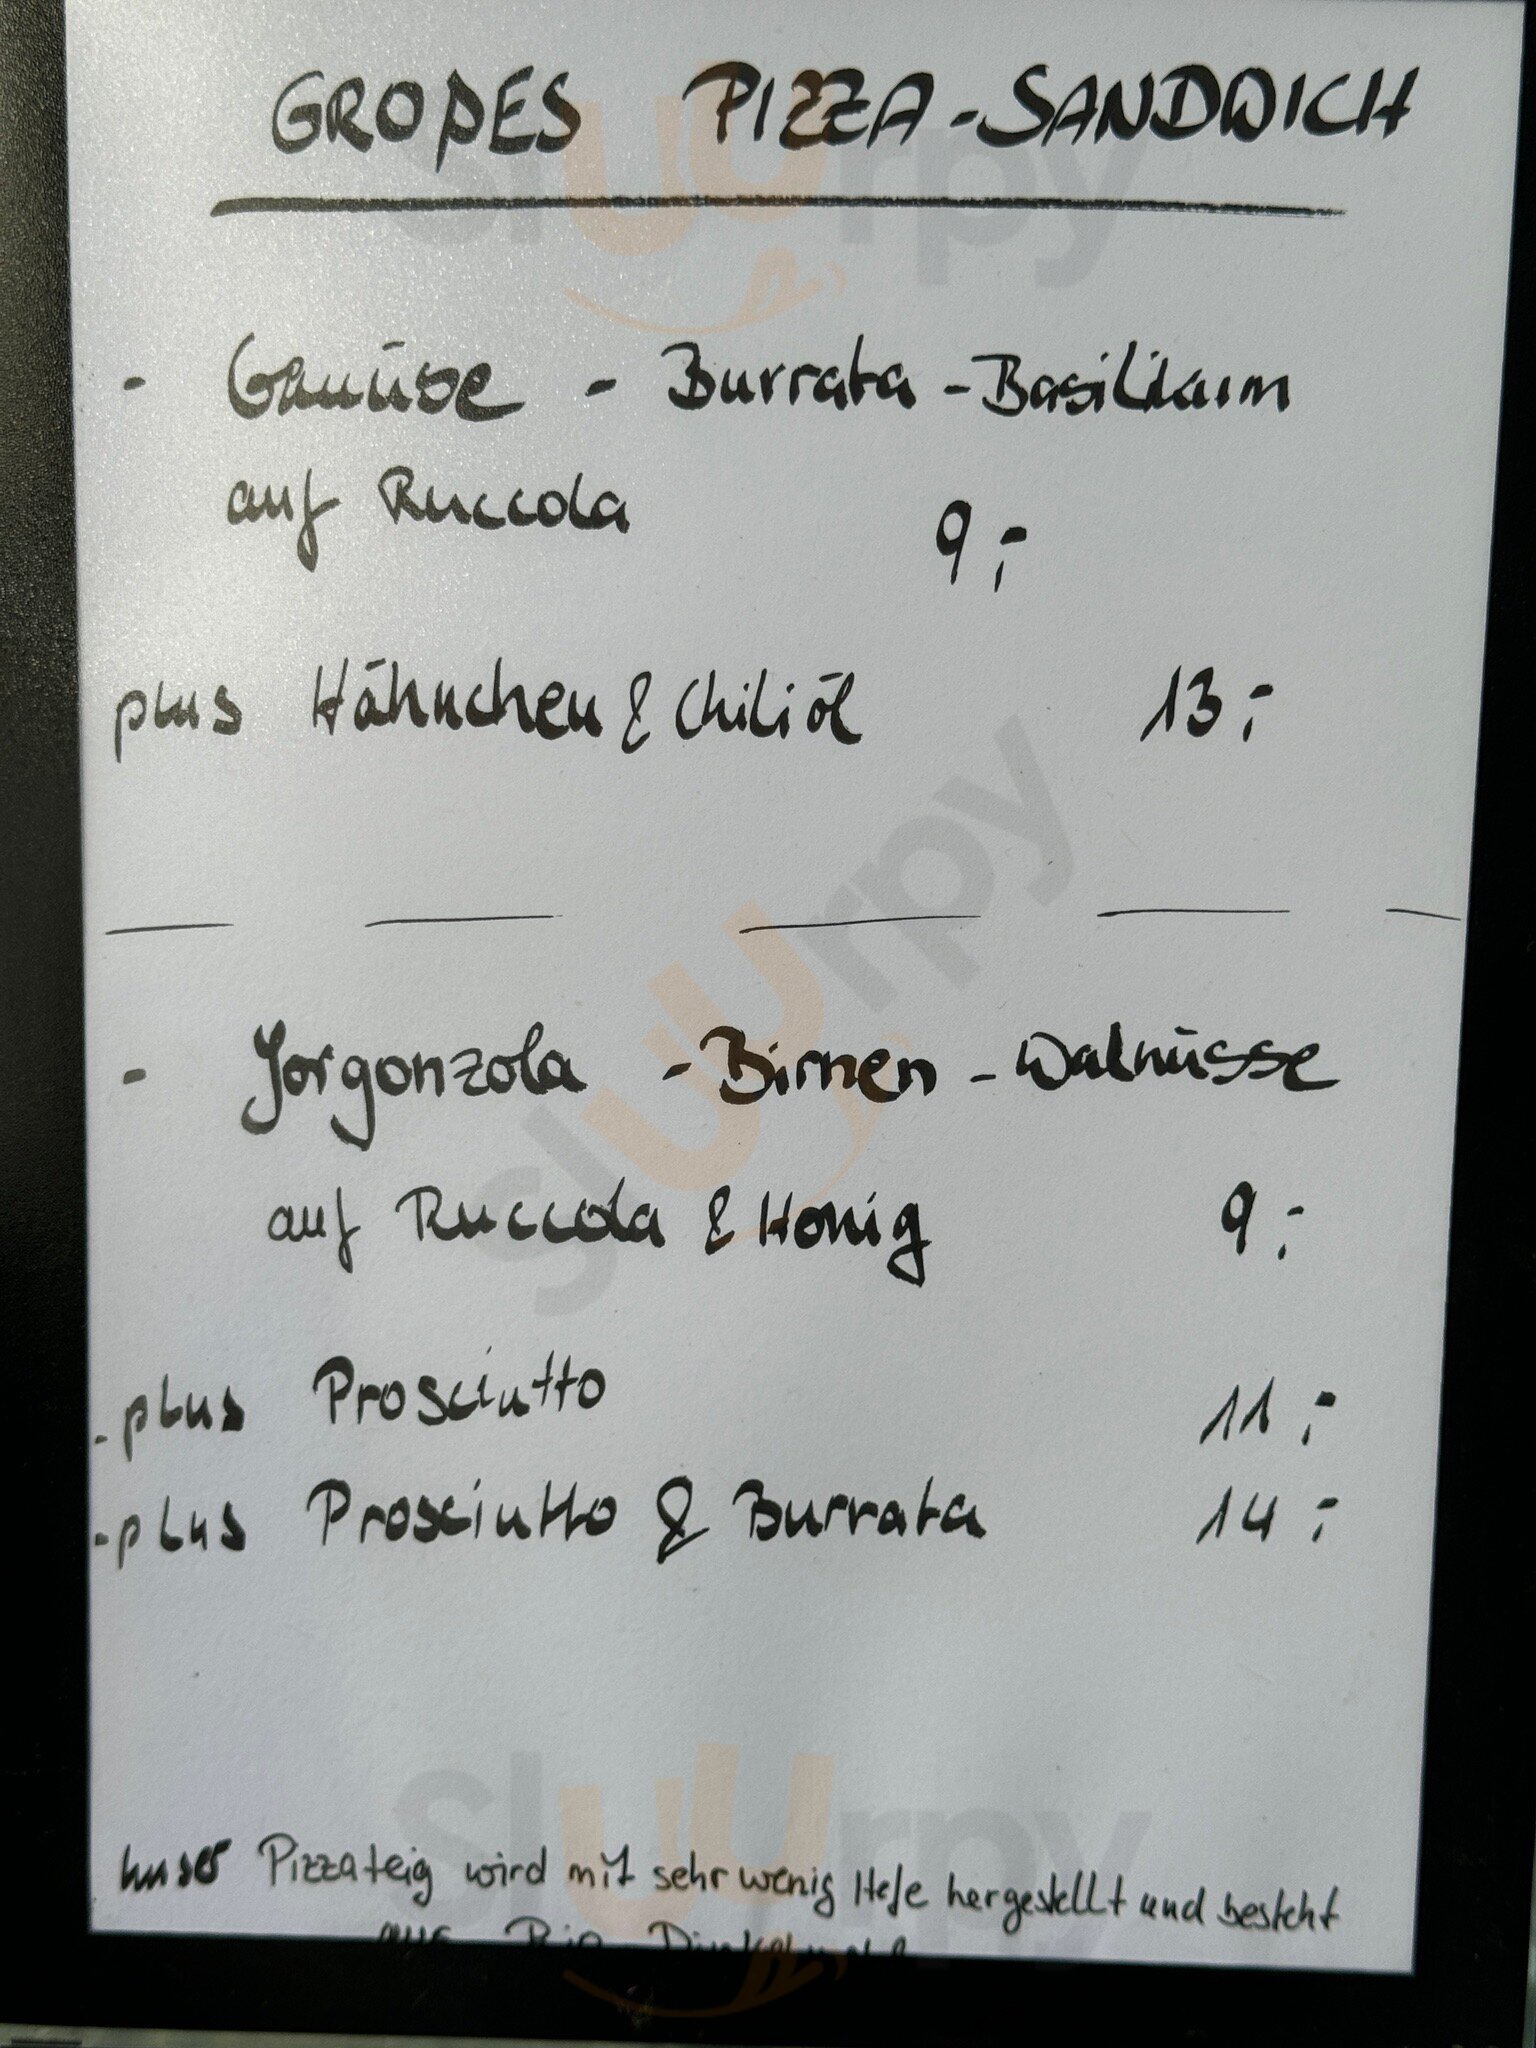 GROßES PIZZA-SANDWICH
- Gemüse - Burrata - Basilikum
auf Ruccola 9,-
plus Hähnchen & Chiliöl 13,-
- Gorgonzola - Birnen - Walnüsse
auf Ruccola & Honig 9,-
- plus Prosciutto 11,-
- plus Prosciutto & Burrata 14,-
unser Pizzateig wird mit sehr wenig Hefe hergestellt und besteht
aus Bio
sluurpy
sluurpy
sluurpy